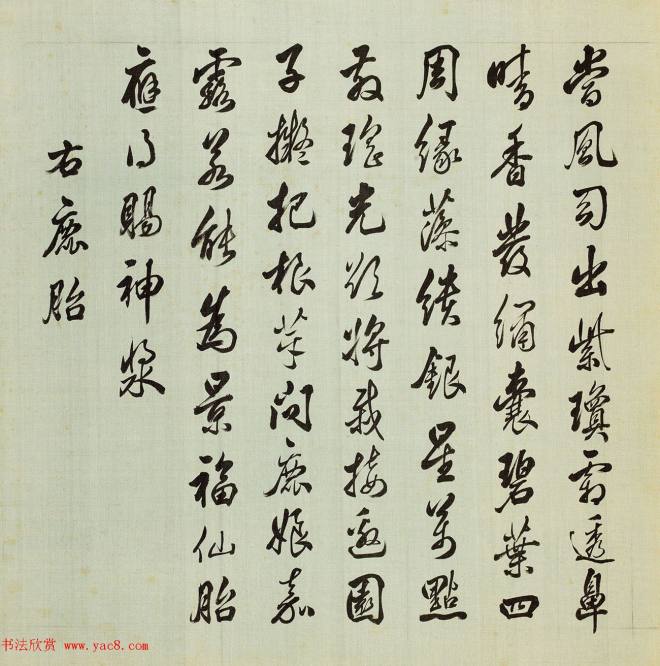 當風司出紫瓊霜透鼻
晴香發絹囊碧葉四
周緣藻繢銀星萬點
敷瑤光欲將栽接邀園
子擬把根芽問鹿娘嘉
露若能為景福仙胎
應得賜神漿
右鹿胎
书法欣赏 www.yac8.com